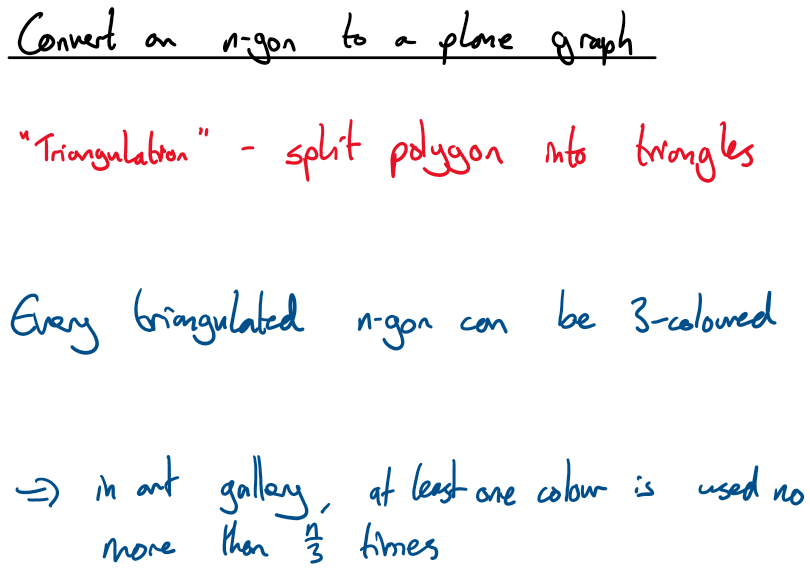 Convert an n-gon to a plane graph
"Triangulation" - split polygon into triangles
Every triangulated n-gon can be 3-coloured
⇒ in art gallery, at least one colour is used no
more than n/3 times